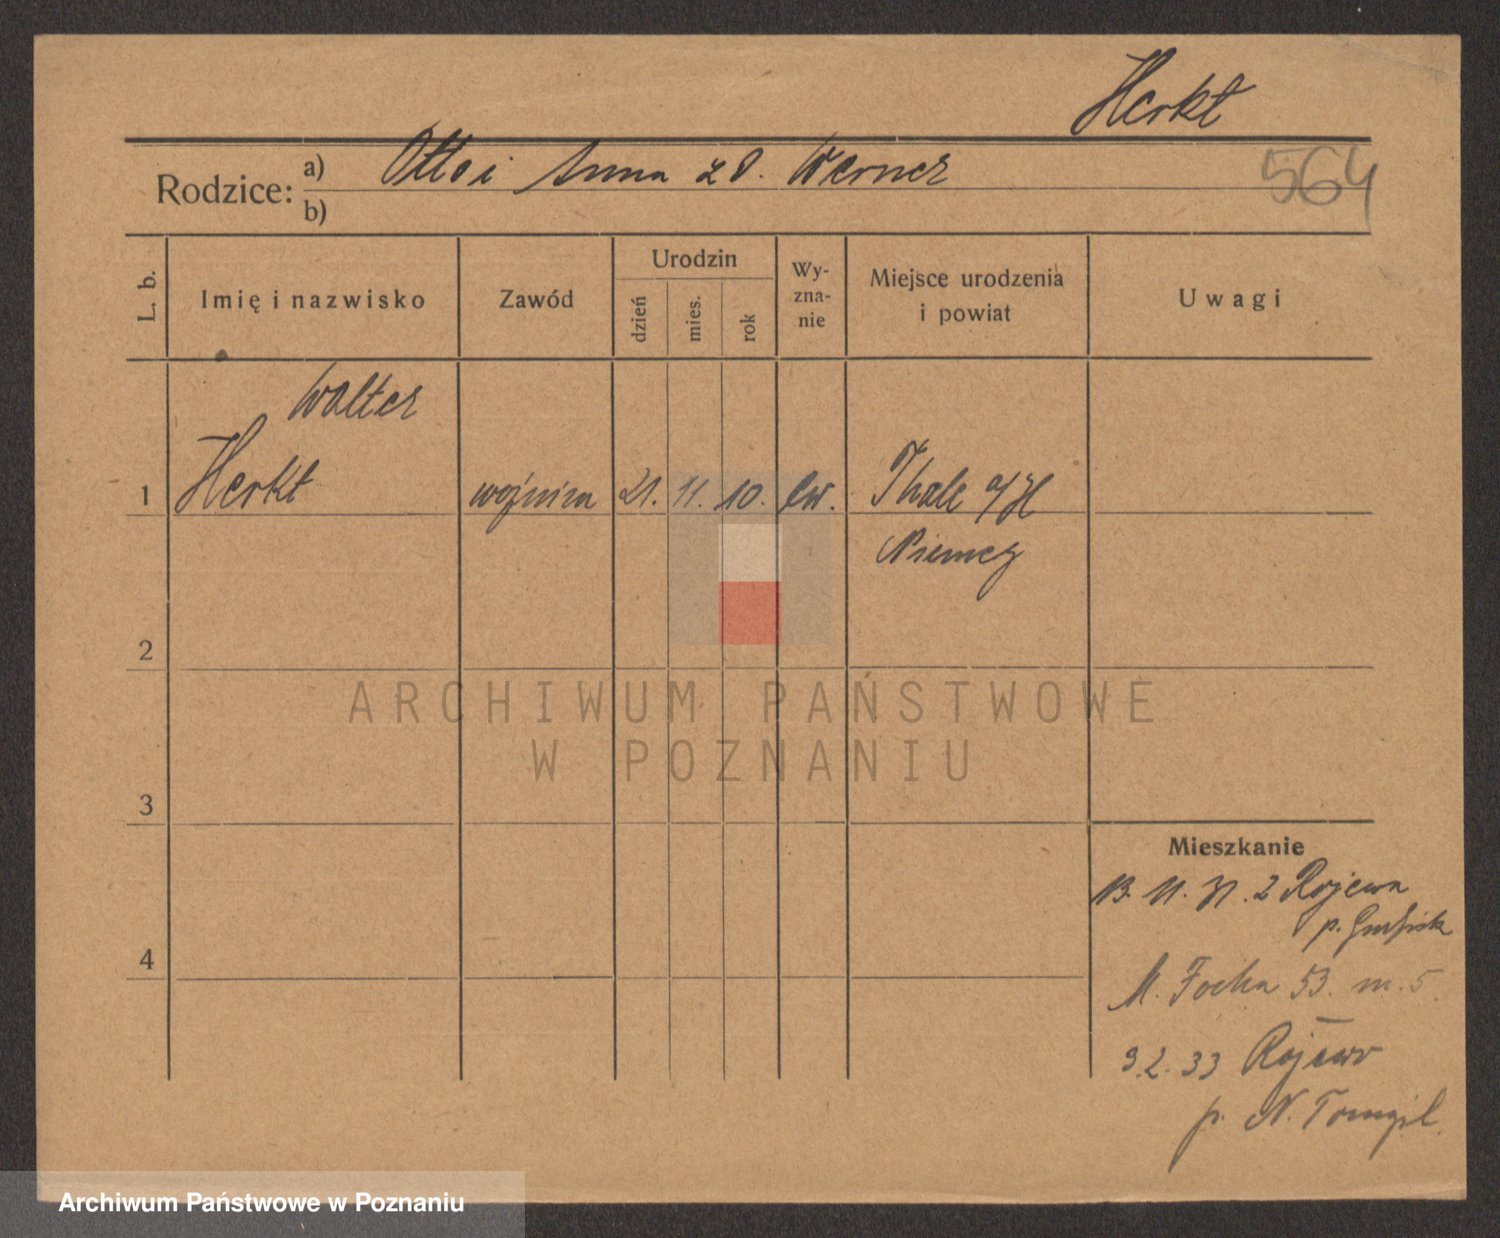 Herkt
Rodzice: a) Otto i Anna z d. Werner
b)
564
L. b.
Imię i nazwisko
Zawód
Urodzin
dzień
mies.
rok
Wy-
zna-
nie
Miejsce urodzenia
i powiat
Uwagi
Walter
1 Herkt woźnica 21. 11. 10. ew. Thale a/H
Niemcy
2
3
4
ARCHIWUM PAŃSTWOWE
W POZNANIU
Mieszkanie
13. 11. 31. z Rojewa
p.
M. Focha 53. m. 5.
9.2.33 Rojewo
p. N. Tomyśl.
Archiwum Państwowe w Poznaniu